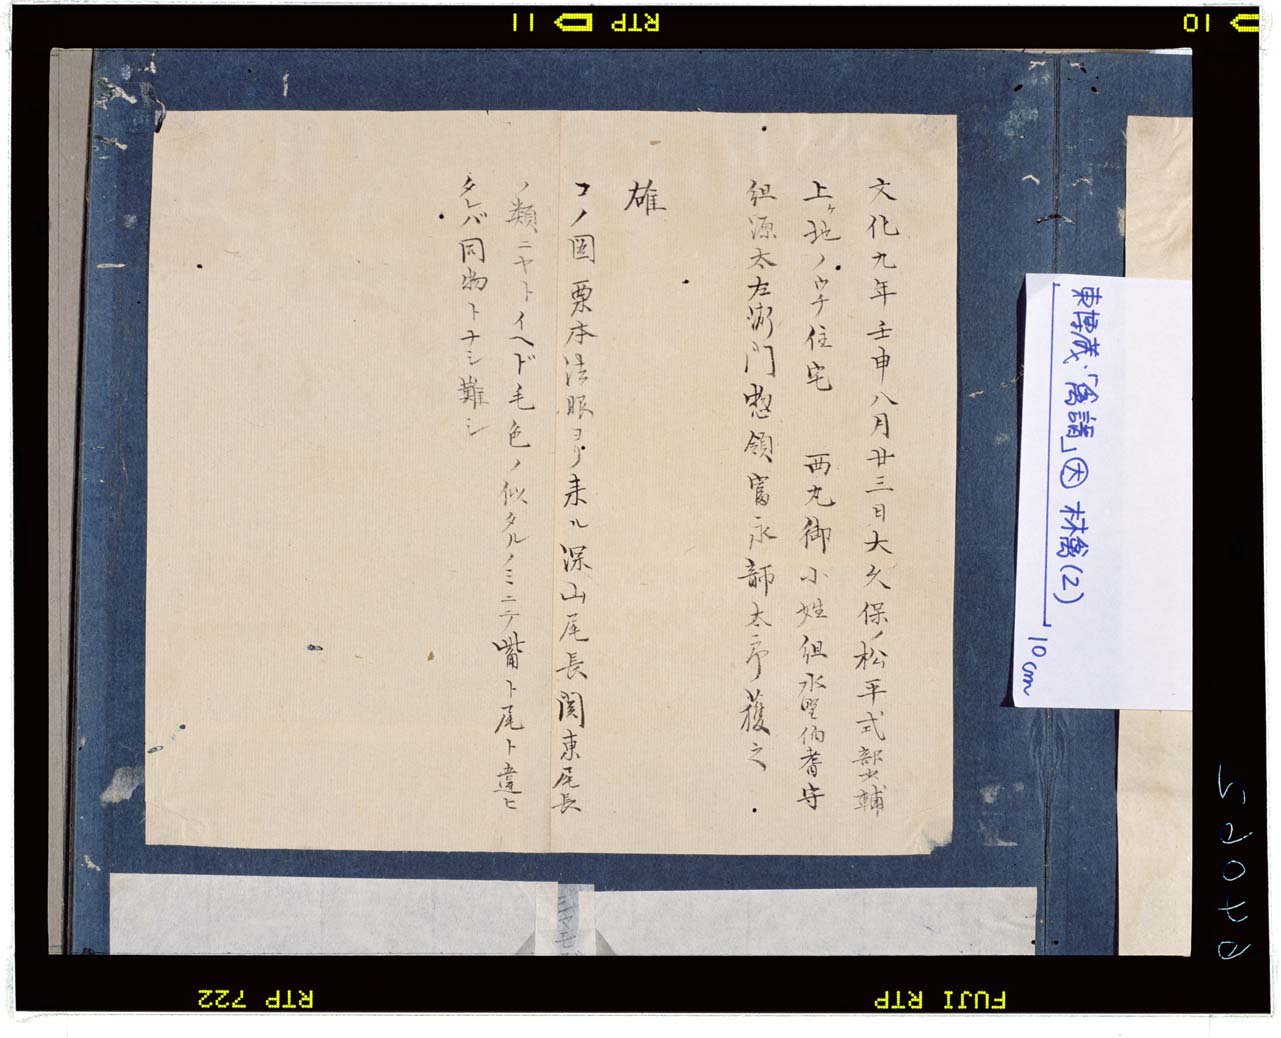 文化九年壬申八月廿三日大久保ノ松平式部大輔
上ケ地ノウチ住宅 西丸御小姓組水野伯耆守
組源太左衛門惣領富永部太郎獲之
雄
コノ図栗本法眼ヨリ来ル深山尾長関東尾長
ノ類ニヤトイヘド毛色ノ似タルノミニテ嘴ト尾ト違ヒ
タレバ同物トナシ難シ
東博蔵「禽譜」大 林禽(2)
10cm
シヤモ
RTP 11
10
RTP 722
FUJI RTP